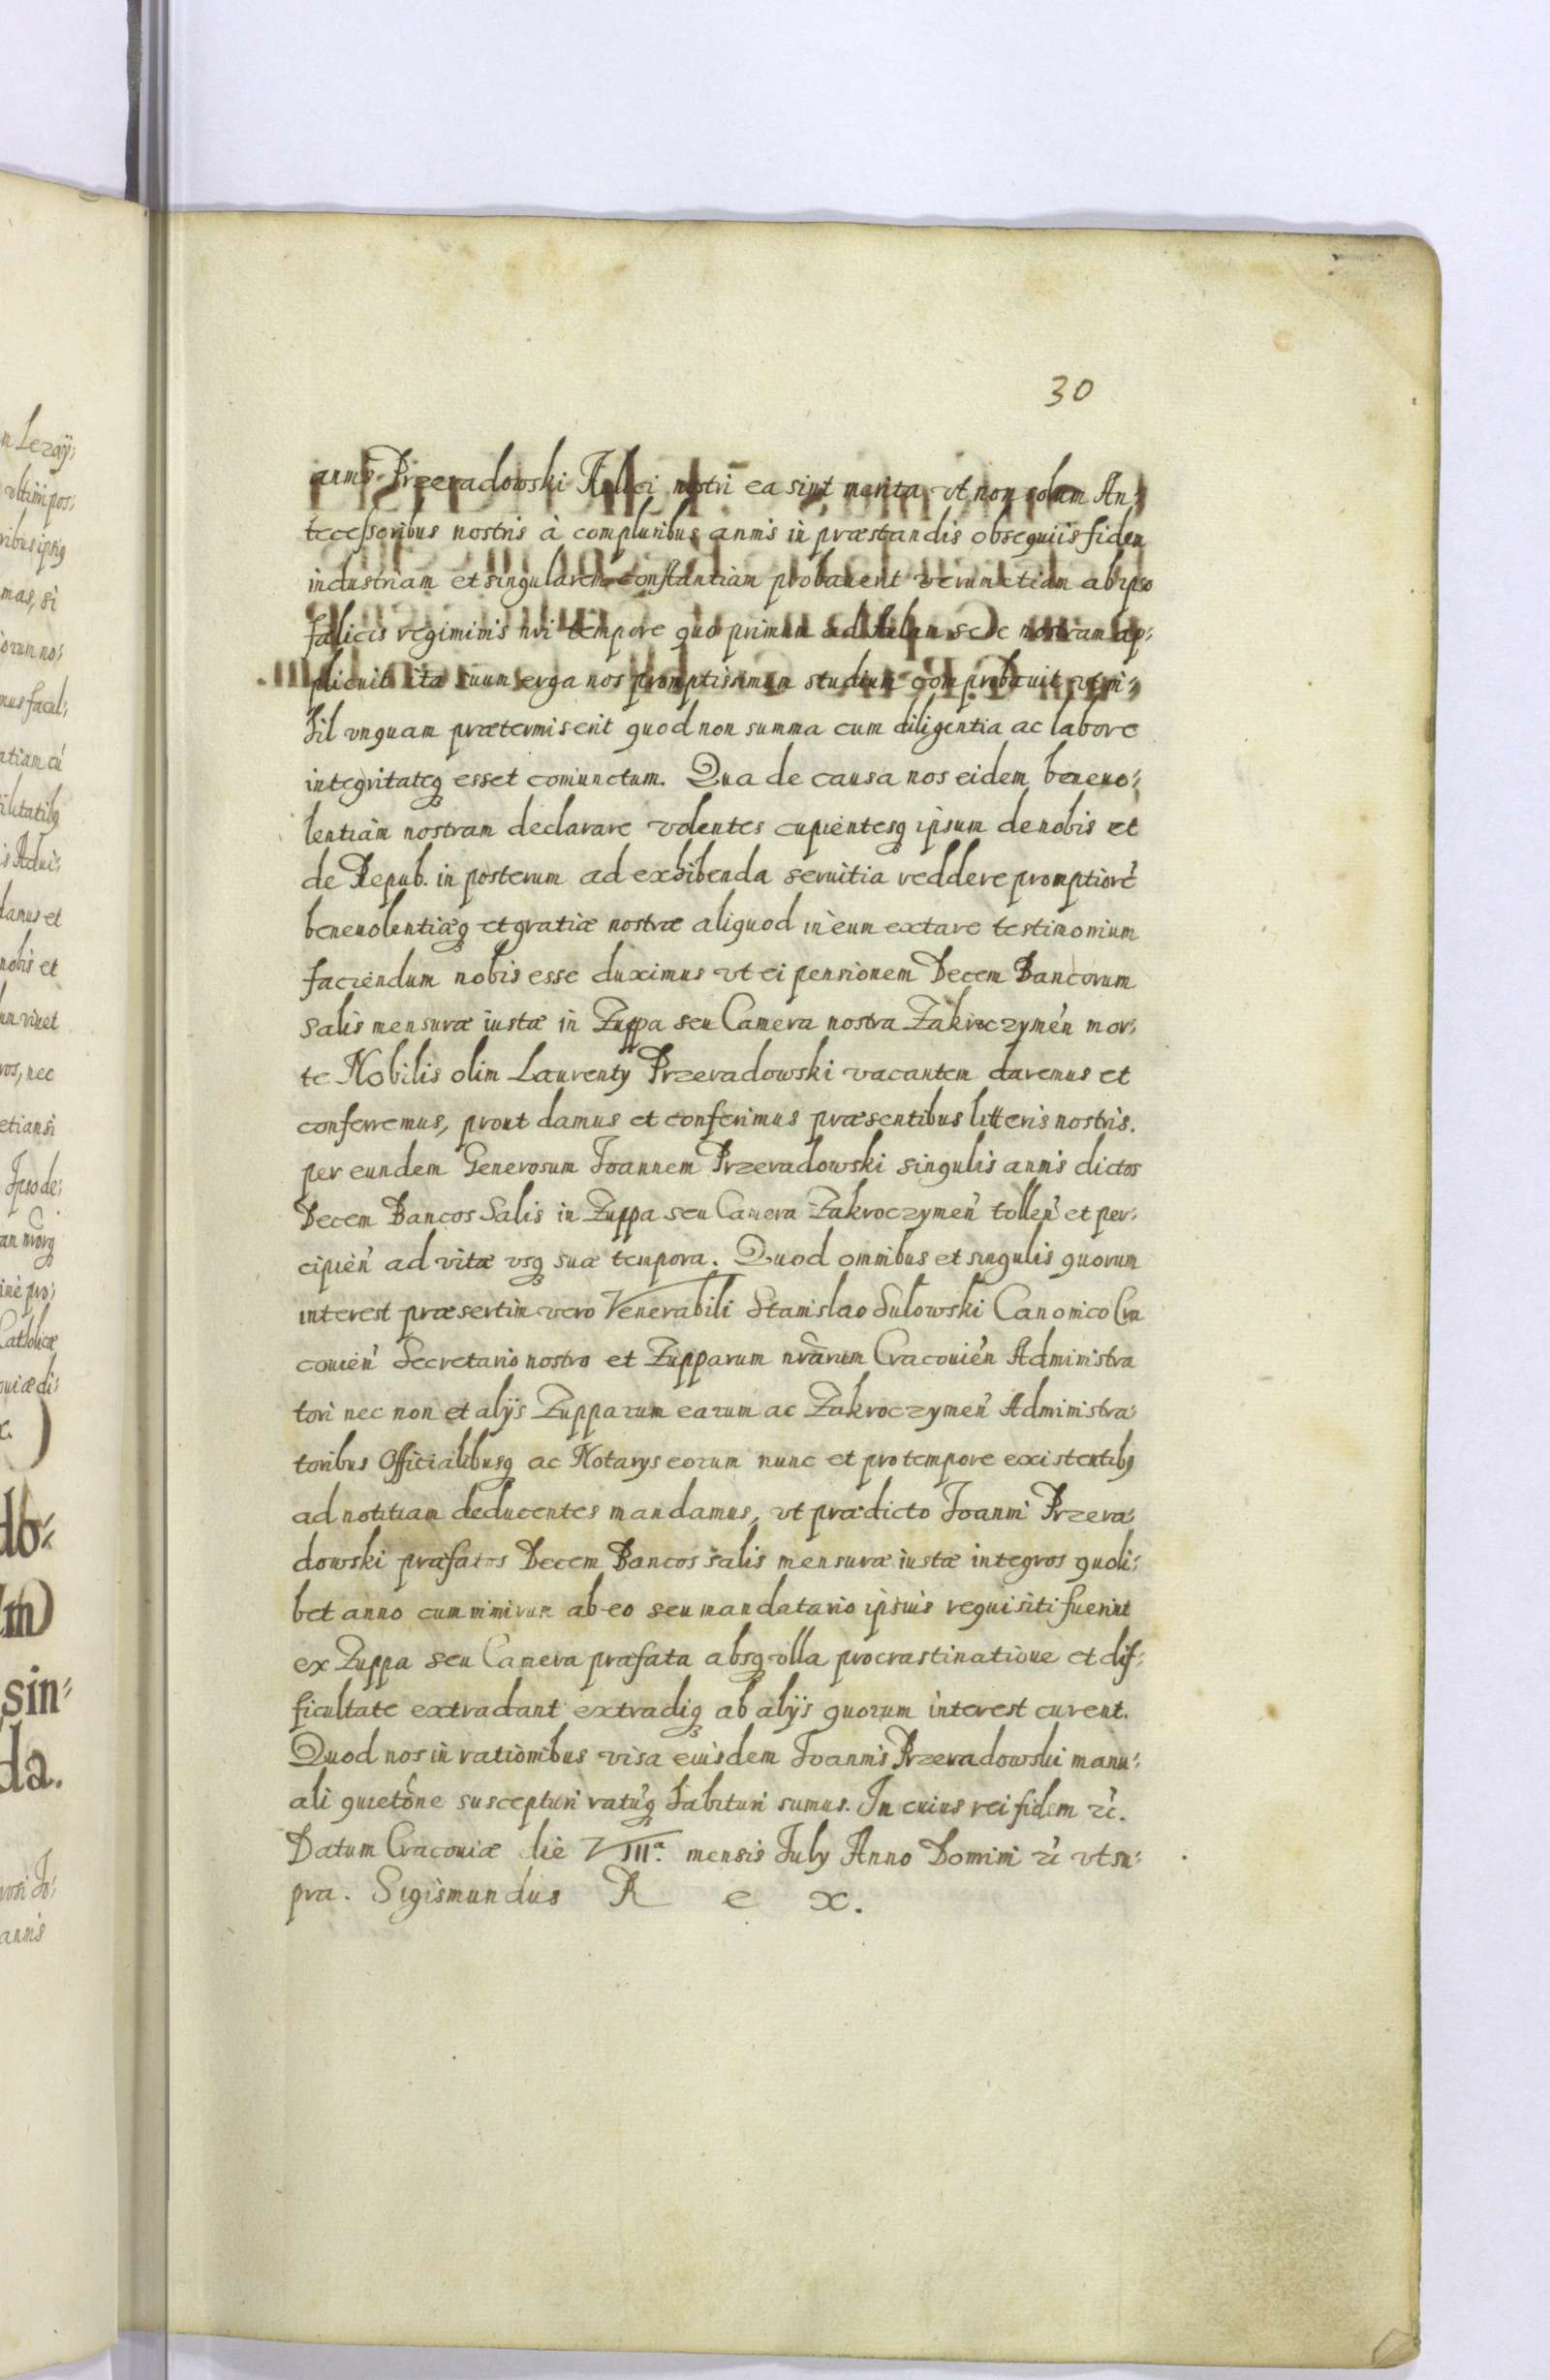 30
annis Przeradowski Aulici nostri ea sint merita vt non solum An;
tecessoribus nostris à compluribus annis in præstandis obsequiis fidem
industriam et singularem constantiam probauerit verum etiam ab ipso
fælicis regiminis nri tempore quo primum ad Aulam sese nostram ap;
plicuit ita suum erga nos promptissimum studium comprobauit vt ni;
hil vnquam prætermiserit quod non summa cum diligentia ac labore
integritateq esset coniunctum. Qua de causa nos eidem beneuo;
lentiam nostram declarare volentes cupientesq ipsum de nobis et
de Repub. in posterum ad exhibenda seruitia reddere promptiorē
beneuolentiæq et gratiæ nostræ aliquod in eum extare testimonium
faciendum nobis esse duximus vt ei pensionem Decem Bancorum
Salis mensuræ iustæ in Zuppa seu Camera nostra Zakroczymen̄ mor;
te Nobilis olim Laurenty Przeradowski vacantem daremus et
conferremus, prout damus et conferimus præsentibus litteris nostris.
per eundem Generosum Joannem Przeradowski singulis annis dictos
Decem Bancos Salis in Zuppa seu Camera Zakroczymen̄ tollen̄ et per;
cipien̄ ad vitæ vsq suæ tempora. Quod omnibus et singulis quorum
interest præsertim vero Venerabili Stanislao Sulowski Canonico Cra
couien̄ Secretario nostro et Zupparum nrārum Cracouien̄ Administra
tori nec non et alijs Zupparum earum ac Zakroczymen̄ Administra;
toribus Officialibusq ac Notarys eorum nunc et pro tempore existentibq
ad notitiam deducentes mandamus, vt prædicto Joanni Przera;
dowski præfatos Decem Bancos salis mensuræ iustæ integros quoli;
bet anno cum nimirum ab eo seu mandatario ipsius requisiti fuerint
ex Zuppa seu Camera præfata absq vlla procrastinatione et dif;
ficultate extradant extradiq ab alijs quorum interest curent.
Quod nos in rationibus visa eiusdem Joannis Przeradowski manu;
ali quietōne suscepturi ratūq habituri sumus. In cuius rei fidem ꝛc̄.
Datum Cracouiæ die VIIIa. mensis July Anno Domini ꝛc̄ vt su;
pra. Sigismundus R e x.